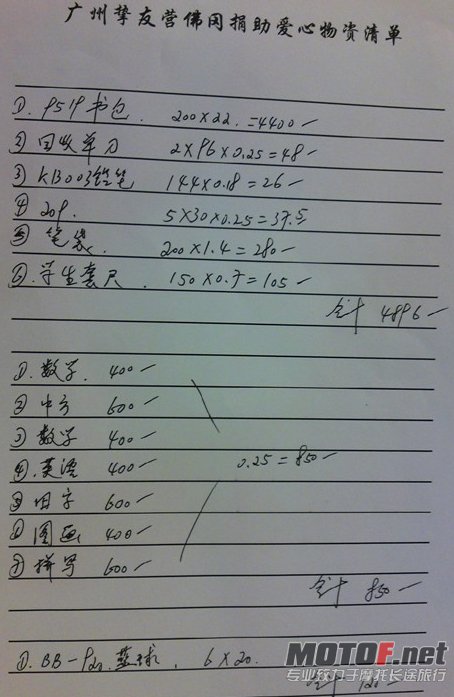 广州挚友营佛冈捐助爱心物资清单
①. 9519书包. 200×22.=4400—
② 回收单刀 2×96×0.25=48—
③ KB003铅笔 144×0.18=26—
④ 20P. 5×30×0.25=37.5
⑤ 笔袋. 200×1.4=280—
⑥. 学生套尺. 150×0.7=105—
合计 4896—
①. 数学. 400—
② 中方 600—
③ 数学 400—
④. 英语 400—
0.25=850—
⑤ 田字 600—
⑥ 图画 400—
⑦ 拼写 600—
合计 850—
①. BB- 篮球. 6×20.
合计 120—
MOTOF.net
专业致力于摩托长途旅行